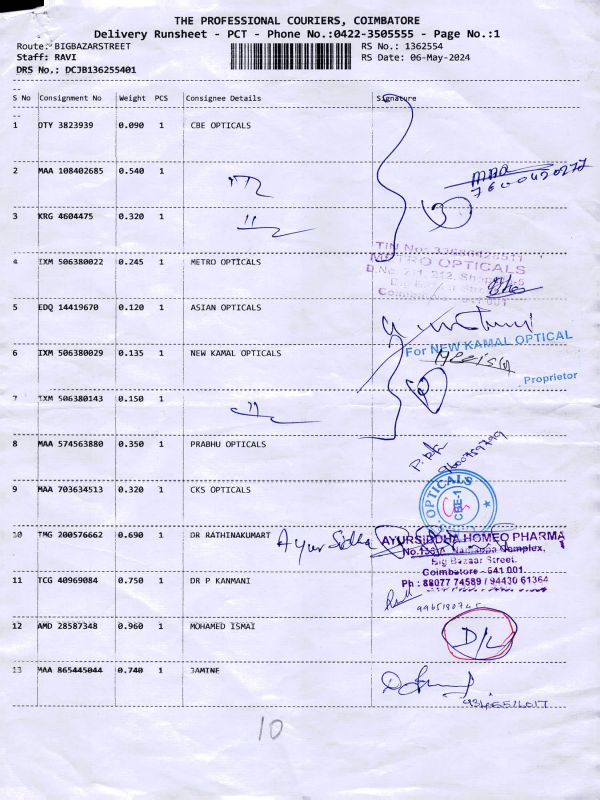 THE PROFESSIONAL COURIERS, COIMBATORE
Delivery Runsheet - PCT - Phone No.:0422-3505555 - Page No.:1
Route: BIGBAZARSTREET RS No.: 1362554
Staff: RAVI RS Date: 06-May-2024
DRS No.: DCJB136255401
S No Consignment No Weight PCS Consignee Details Signature
1 OTY 3823939 0.090 1 CBE OPTICALS
2 MAA 108402685 0.540 1
3 KRG 4604475 0.320 1
TIN No:
4 IXM 506380022 0.245 1 METRO OPTICALS METRO OPTICALS
5 EDQ 14419670 0.120 1 ASIAN OPTICALS
For NEW KAMAL OPTICAL
6 IXM 506380029 0.135 1 NEW KAMAL OPTICALS
Proprietor
7 IXM 506380143 0.150 1
8 MAA 574563880 0.350 1 PRABHU OPTICALS
9 MAA 703634513 0.320 1 CKS OPTICALS
OPTICALS
CBE-1
10 TMG 200576662 0.690 1 DR RATHINAKUMART Ayur Siddha
AYURSIDDHA HOMEO PHARMA
Complex,
Big Bazaar Street,
Coimbatore - 641 001.
Ph : 88077 74589 / 94430 61364
11 TCG 40969084 0.750 1 DR P KANMANI
12 AMD 28587348 0.960 1 MOHAMED ISMAI D/L
13 MAA 865445044 0.740 1 JAMINE
10